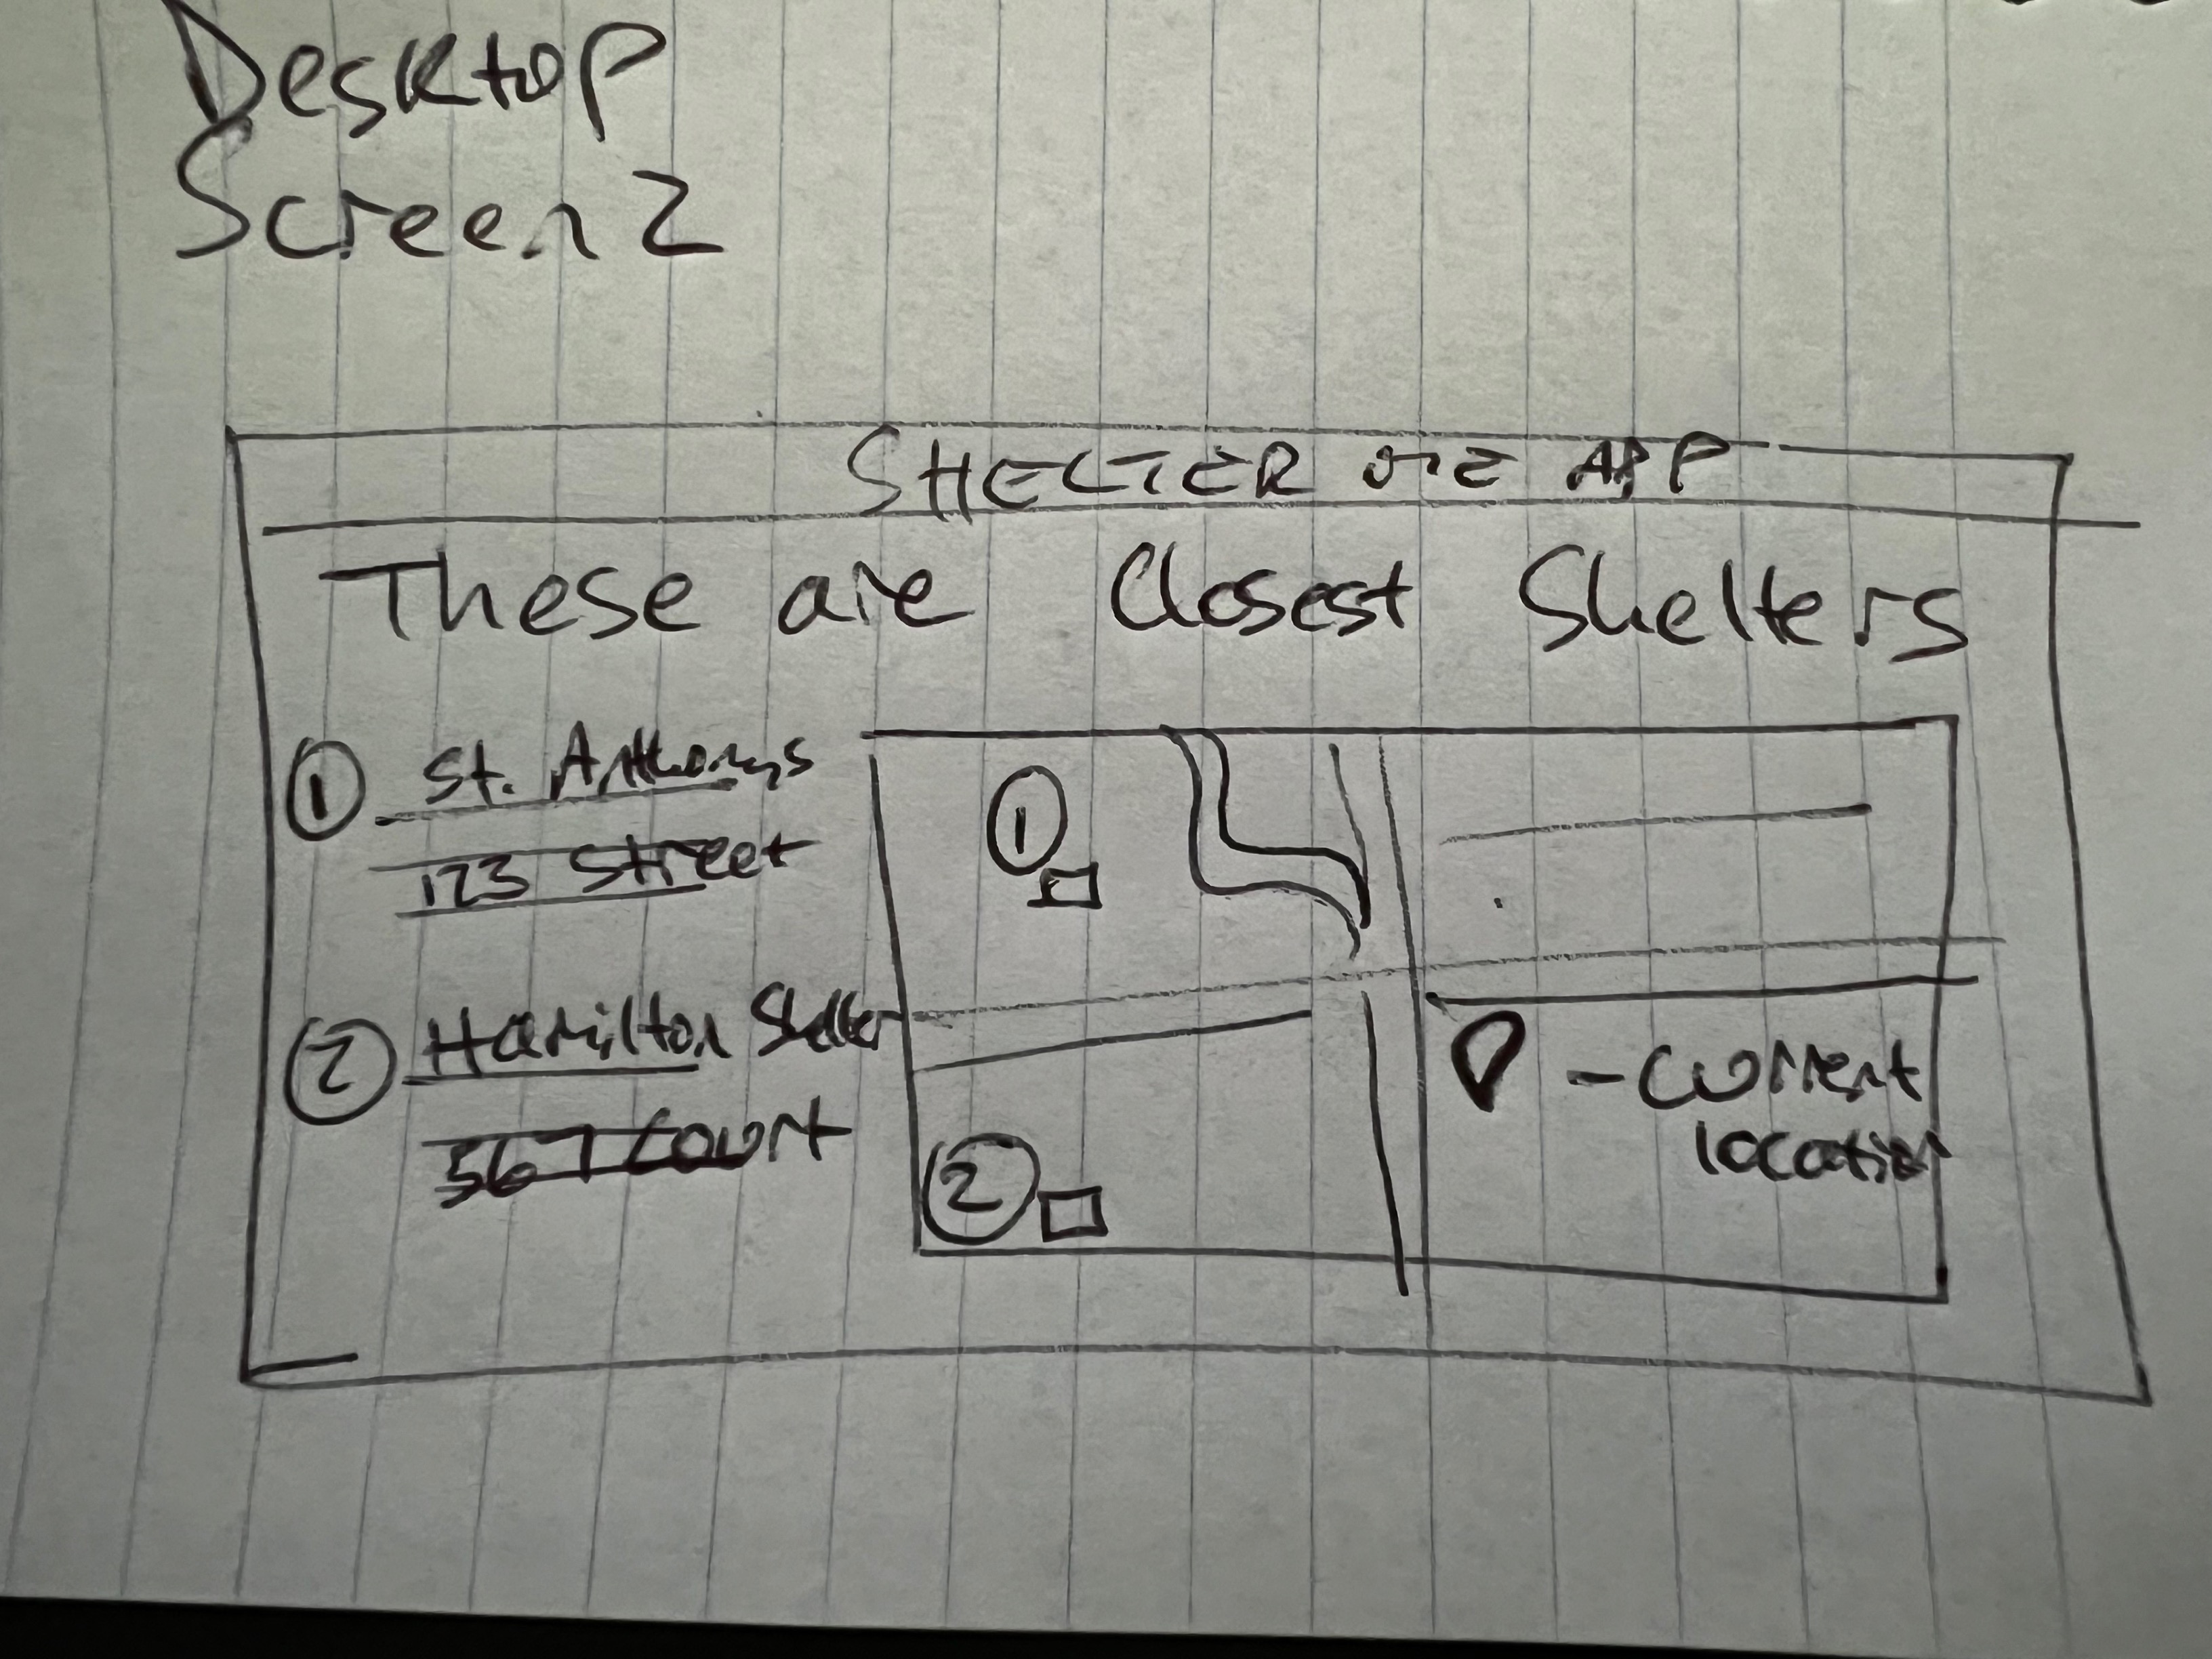 Desktop
Screen 2
SHELTER ME APP
These are Closest Shelters
1 St. Anthonys
123 Street
2 Hamilton Shelter
567 Court
1
2
- Current
location